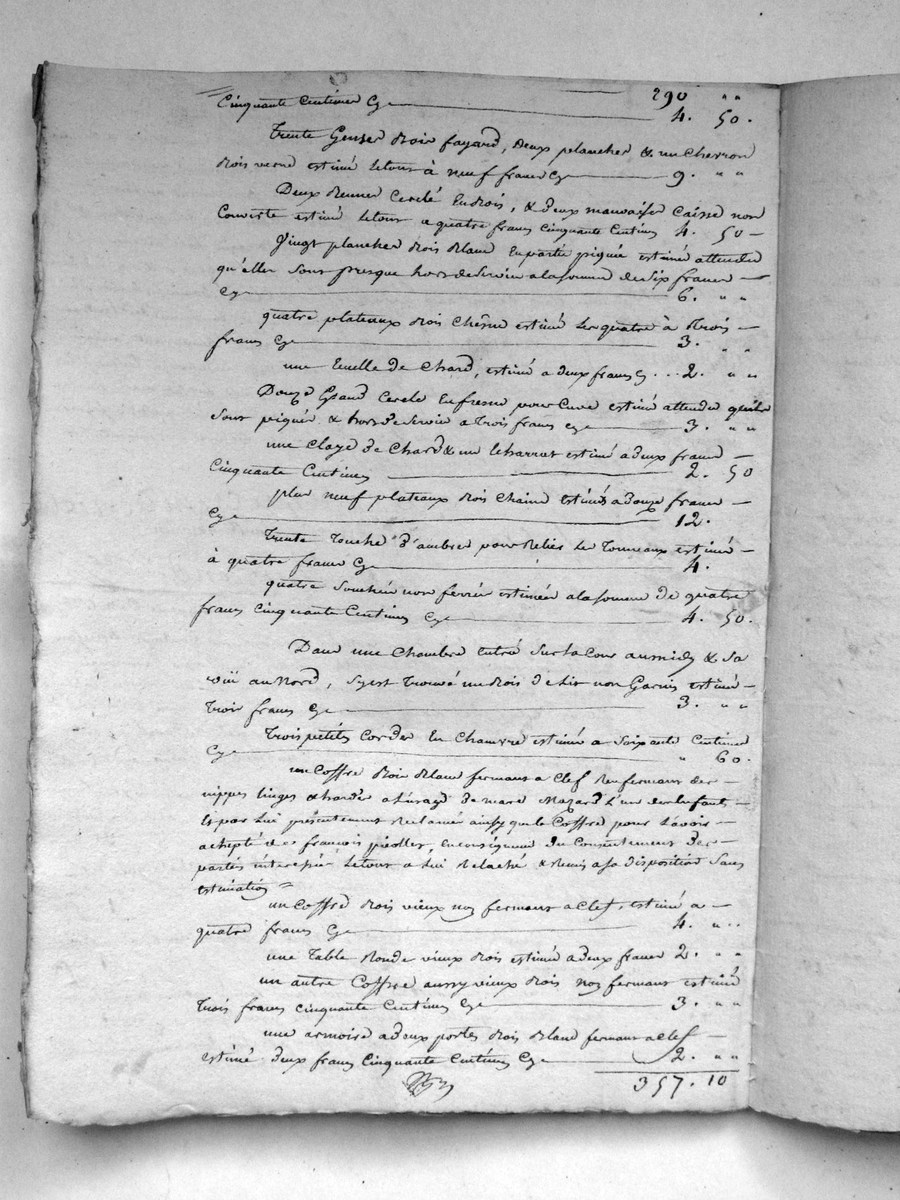 290 " "
Cinquante Centimes Cy 4. 50.
Trente Gerses Bois fayard, deux planches & un Chevron
Bois verne estimé letout à neuf francs Cy 9. " "
Deux Bennes Cerclé En Bois, & deux mauvaises Caisse non
Couverte estimé letout a quatre francs Cinquante Centimes 4. 50
Vingt planches Bois Blanc En partie piquée estimé attendu
qu'elles sont presque hors de Service a la somme de Six francs
Cy 6. " "
quatre plateaux Bois Chêne estimé Les quatre à Trois
francs Cy 3. " "
une de Chard, estimé a deux francs Cy ... 2. " "
Douze Grand Cercle En fresne pour Cuve estimé attendu quils
Sont piqués & hors de Service a Trois francs Cy 3. " "
une Claye de Chard & un estimé a deux francs
Cinquante Centimes 2. 50
plus neuf plateaux Bois Chaine estimés a Douze francs
Cy 12.
Trente d'ambres pour Relier Les Tonneaux estimé
à quatre francs Cy 4.
quatre non ferrés estimées a la somme de quatre
francs Cinquante Centimes Cy 4. 50.
Dans une Chambre entré Sur la Cour au midy & Sa
vüe au Nord, S'y est Trouvé un Bois de Lit non Garnis estimé
Trois francs Cy 3. " "
Trois petits Cordes En Chanvre estimée a Soixante Centimes
Cy " 60.
un Coffre Bois Blanc fermant a Clef Renfermant des
nippes linges & hardes a L'usage de marc Mazard L'un des Enfants
Et par Lui présentement Reclamés ainsy que le Coffre pour L'avoir
achepté de françois piollet, En conséquence du Consentement des
parties interessée Letout a Lui Relaché & Remis a sa disposition Sans
estimation
un Coffre Bois vieux non fermant a Clef, estimé a
quatre francs Cy 4. " "
une Table Ronde vieux Bois estimé a deux francs 2. " "
un autre Coffre aussy vieux Bois non fermant estimé
Trois francs cinquante Centimes Cy 3. " "
une armoire a deux portes Bois Blanc fermant a Clef
estimé deux francs Cinquante Centimes Cy 2. " "
357. 10